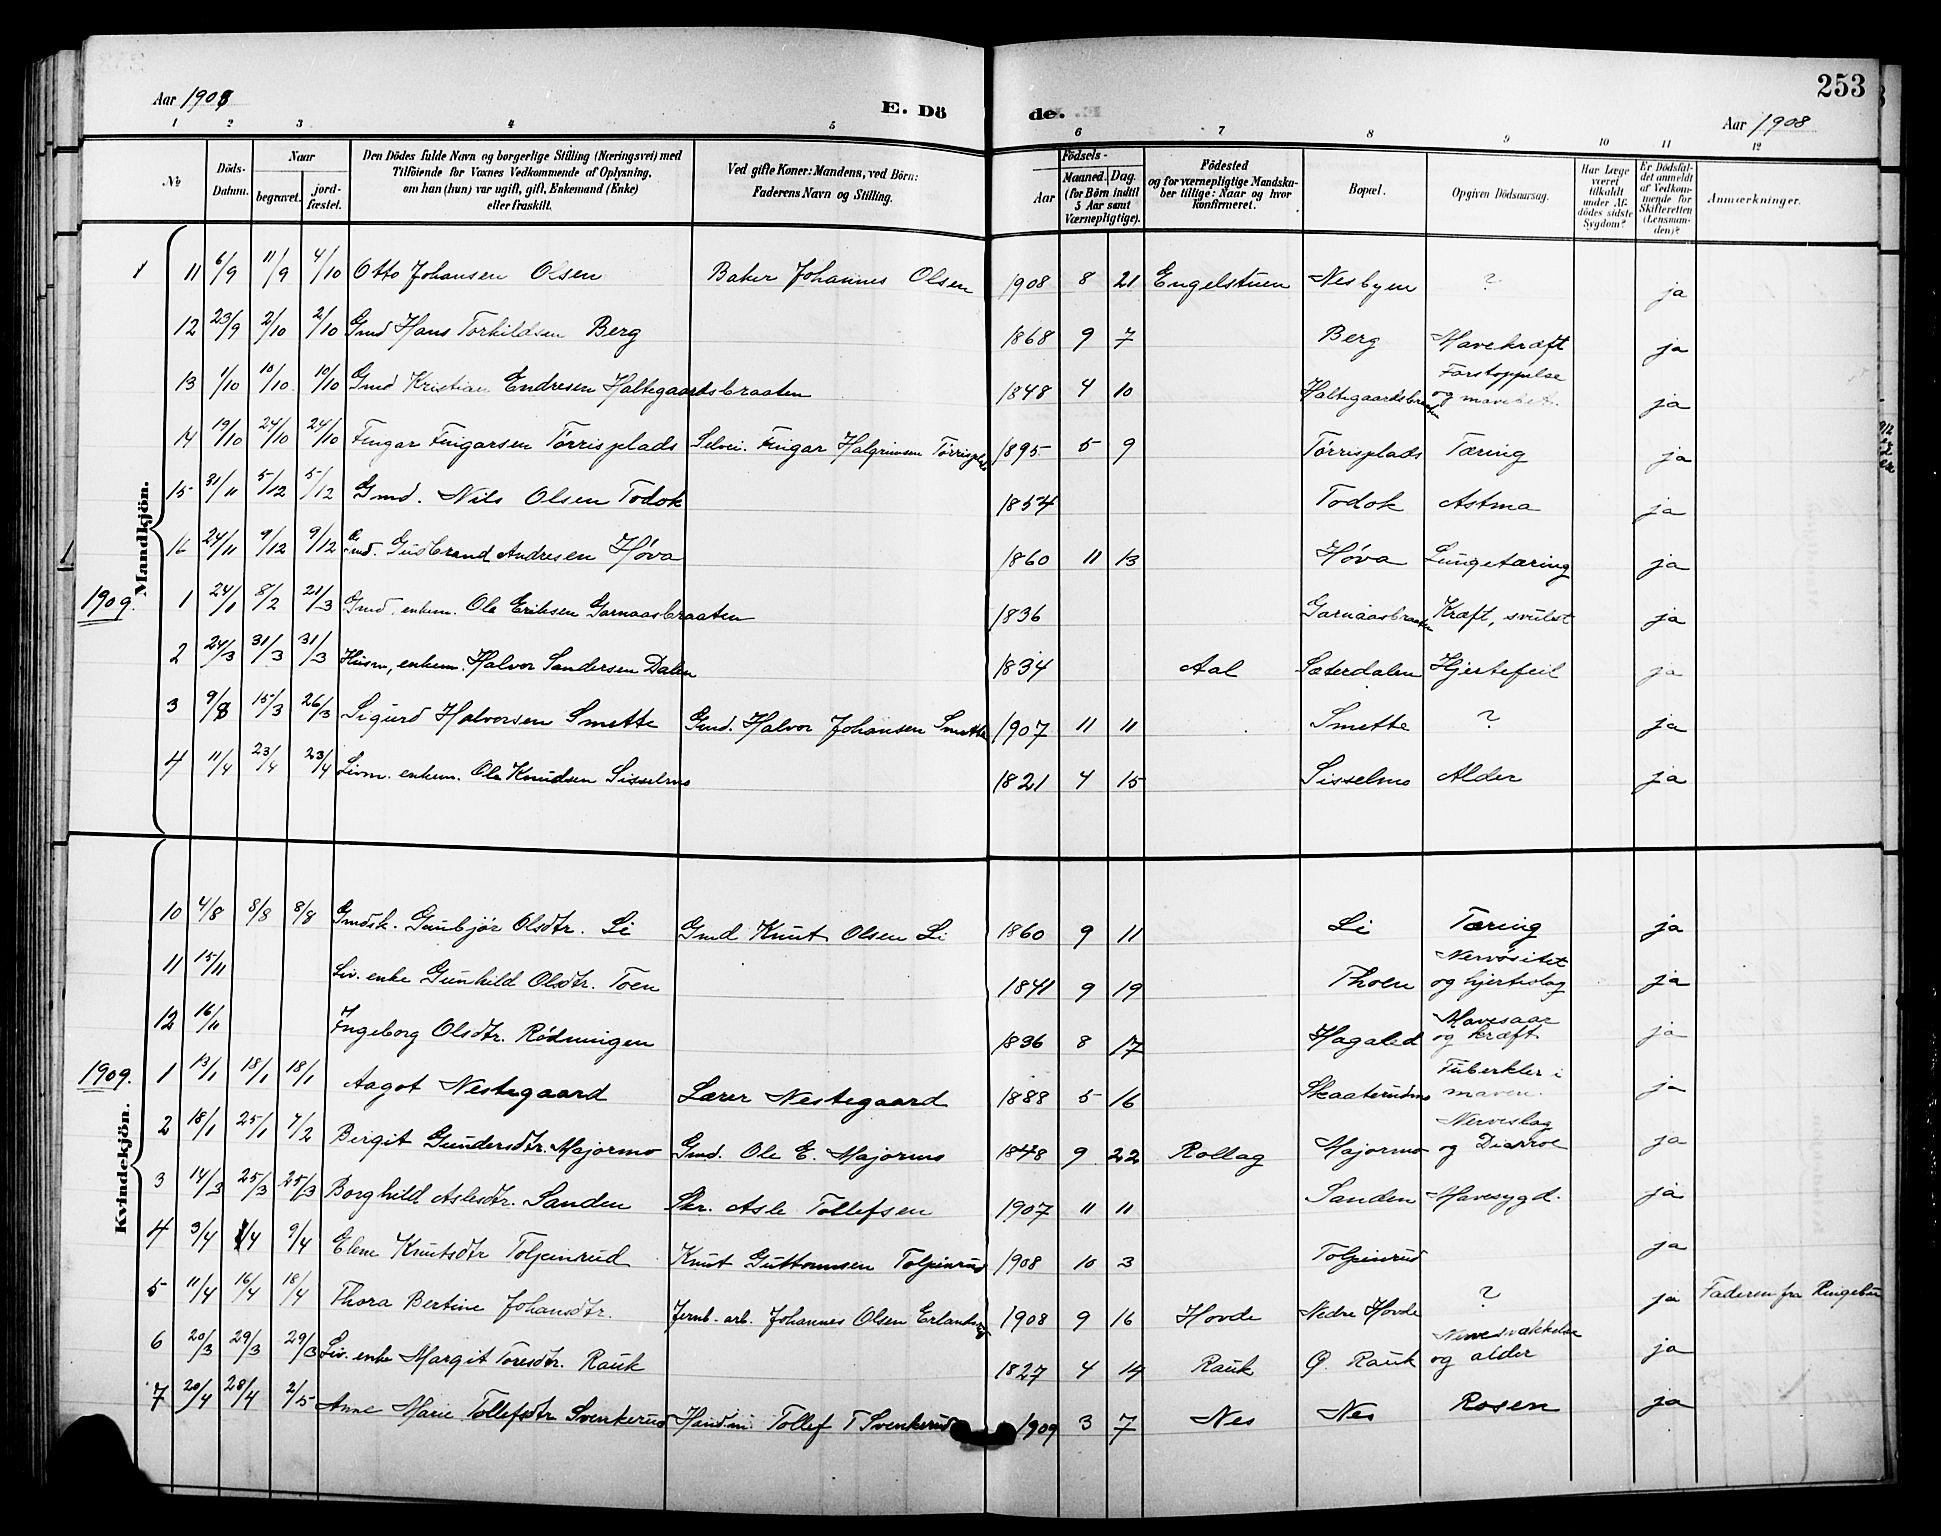 253
Aar 1908
E. Döde.
Aar 1908
1 2 3 4 5 6 7 8 9 10 11 12
№
Döds-Datum.
Naar
begravet.
jord-fæstet.
Den Dödes fulde Navn og borgerlige Stilling (Næringsvei) med Tilföiende for Voxnes Vedkommende af Oplysning, om han (hun) var ugift, gift, Enkemand (Enke) eller fraskilt.
Ved gifte Koner: Mandens, ved Börn: Faderens Navn og Stilling.
Födsels-
Aar
Maaned. Dag.
(for Börn indtil 5 Aar samt Værnepligtige).
Födested og for værnepligtige Mandska-ber tillige: Naar og hvor konfirmeret.
Bopæl.
Opgiven Dödsaarsag.
Har Læge været tilkaldt under Af-dödes sidste Sygdom?
Er Dödsfal-det anmeldt af Vedkom-mende for Skifteretten (Lensman-den)?
Anmærkninger.
Mandkjön.
11 6/9 11/9 4/10 Otto Johansen Olsen Baker Johannes Olsen 1908 8 21 Engelstuen Nesbyen ? ja
12 23/9 2/10 2/10 Gmd Hans Torkildsen Berg 1868 9 7 Berg Mavekræft ja
13 1/10 10/10 10/10 Gmd Kristian Endresen Haltegaardsbraaten 1848 4 10 Haltegaardsbraaten Forstoppelse og ja
14 19/10 24/10 24/10 Fingar Fingarsen Tørrisplads Selvei. Fingar Halgrimsen Tørrisplads 1895 5 9 Tørrisplads Tæring ja
15 31/11 5/12 5/12 Gmd. Nils Olsen Todok 1854 Todok Astma ja
16 24/11 9/12 9/12 Gmd. Gudbrand Andresen Høva 1860 11 13 Høva Lungetæring ja
1909.
1 24/1 8/2 21/3 Gmd, enkem. Ole Eriksen Garnaasbraaten 1836 Garnaasbraaten Kræft, svulst ja
2 24/3 31/3 31/3 Husm, enkem. Halvor Sandersen Dalen 1834 Aal Sæterdalen Hjertefeil ja
3 9/3 15/3 26/3 Sigurd Halvorsen Smette Gmd. Halvor Johansen Smette 1907 11 11 Smette ? ja
4 11/4 23/4 23/4 enkem. Ole Knudsen Sisselmo 1821 4 15 Sisselmo Alder ja
Kvindekjön.
10 4/8 8/8 8/8 Gmdsk. Gunbjør Olsdtr. Li Gmd Knut Olsen Li 1860 9 11 Li Tæring ja
11 15/11 Liv. enke Gunhild Olsdtr. Toen 1841 9 19 Thoen Nervøsitet og hjerteslag ja
12 16/11 Ingeborg Olsdtr. Rødningen 1836 8 17 Hagaled Mavesaar og kræft ja
1909.
1 13/1 18/1 18/1 Aagot Nestegaard Lærer Nestegaard 1888 5 16 Skaaterudmo Tuberkler i maven. ja
2 18/1 25/1 7/2 Birgit Gundersdtr. Majormo Gmd. Ole E. Majormo 1848 9 22 Rollag Majormo Nerveslag og Diarroe ja
3 14/3 25/3 25/3 Borghild Aslesdtr. Sanden Skr. Asle Tollefsen 1907 11 11 Sanden Mavesygd. ja
4 3/4 9/4 9/4 Knutsdtr Tolpinrud Knut Guttormsen Tolpinrud 1908 10 3 Tolpinrud ja
5 11/4 16/4 18/4 Thora Bertine Johansdtr. Jernb.-arb. Johannes Olsen 1908 9 16 Hovde Nedre Hovde ? ja Faderen fra Ringebu
6 20/3 29/3 29/3 Liv. enke Margit Toresdtr. Rauk 1827 4 14 Rauk Ø. Rauk Nervesvækkelse og alder ja
7 20/4 28/4 2/5 Anne Marie Tollefsdtr Svenkerud Handm. Tollef T Svenkerud 1909 3 7 Nes Nes Rosen ja